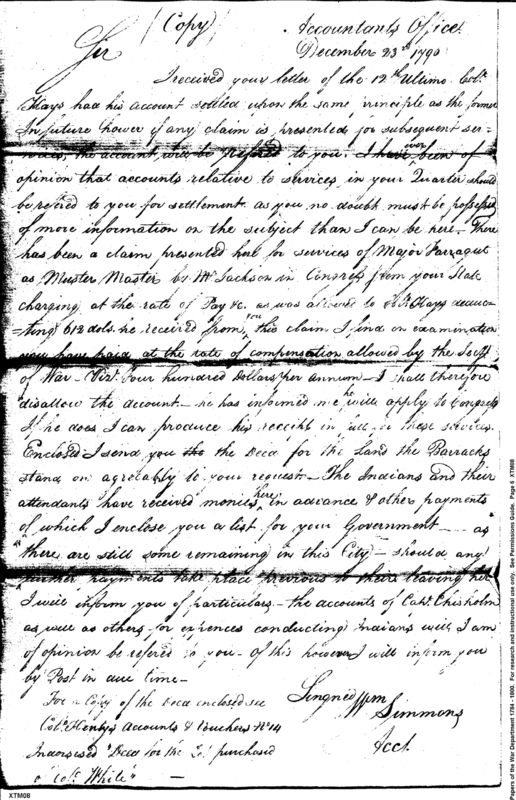 (Copy)
Accountants Office
December 23rd 1796
Sir
I received your letter of the 12th Ultimo. Colo.
Hays had his account settled upon the same principle as the former
In future however if any claim is presented for subsequent ser-
-vices, the account will be refered to you. I have ever been of
opinion that accounts relative to services in your Quarter should
be refered to you for settlement as you no doubt must be possessed
of more information on the subject than I can be here - There
has been a claim presented here for services of Major Farragut
as Muster Master by Mr Jackson in Congress from your State
charging at the rate of Pay &c. as was allowed to Hays deduc-
-ting 612 dols. he received from you this claim I find on examination
you have paid at the rate of compensation allowed by the Secy
of War - Vizt. Four hundred Dollars per annum - I shall therefore
disallow the account - he has informed me he will apply to Congress
If he does I can produce his receipt in full for these services.
Enclosed I send you the Deed for the Land the Barracks
stand on agreeably to your request - The Indians and their
attendants have received monies here in advance & other payments
of which I enclose you a list for your Government - as
there are still some remaining in this City - should any
further payments take place previous to their leaving here
I will inform you of particulars - the accounts of Capt. Chisholm
as well as others for expences conducting Indians will I am
of opinion be refered to you - of this however I will inform you
by Post in due time -
Singned Wm
Simmons
Acct.
For a Copy of the Deed enclosed see
Colo. Henlys Accounts & Vouchers No 14
Indorsised "Deed for the purchased
o' Colo. White" -
XTM08
Papers of the War Department 1784 - 1800. For research and instructional use only. See Permissions Guide. Page 5 XTM08